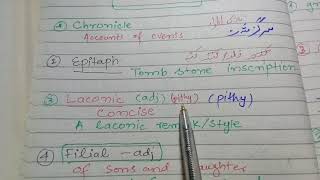 Chronicle
Accounts of events
① Epitaph
Tomb stone inscription
③ Laconic (adj) (pithy) (pithy)
Concise
A laconic remark/style
④ Filial - adj
of sons and daughter